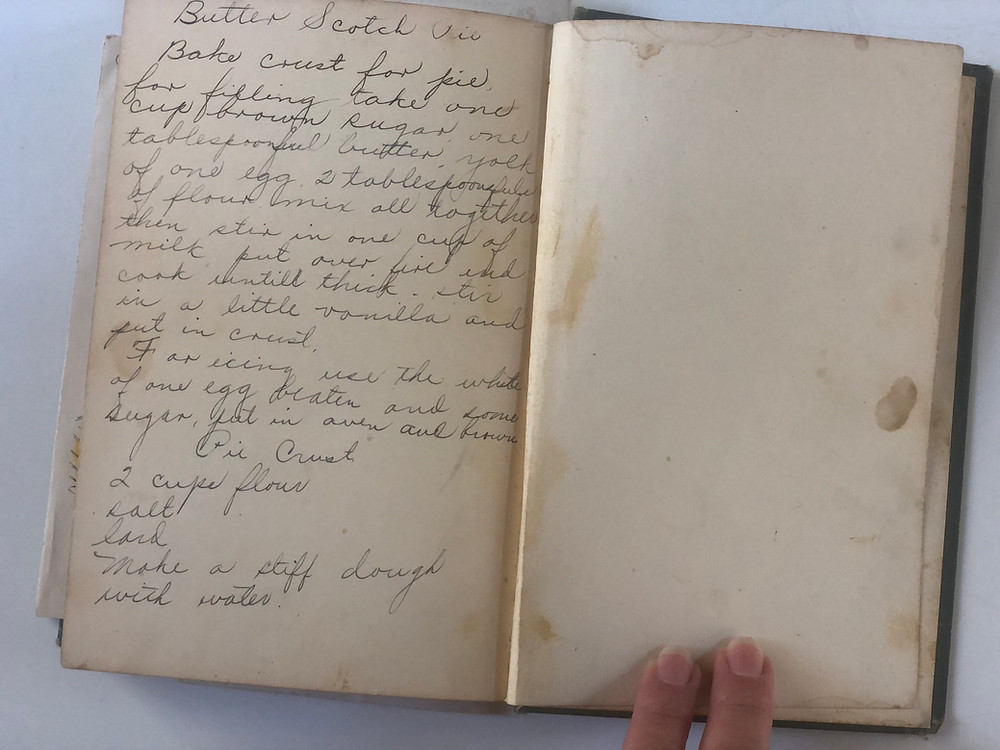 Butter Scotch Pie
Bake crust for pie.
for filling take one
cup brown sugar, one
tablespoonful butter, yolk
of one egg, 2 tablespoonfuls
of flour, mix all together
then stir in one cup of
milk, put over fire and
cook untill thick. stir
in a little vanilla and
put in crust.
For icing use the white
of one egg beaten and some
sugar, put in oven and brown
Pie Crust
2 cups flour
salt
lard
Make a stiff dough
with water.